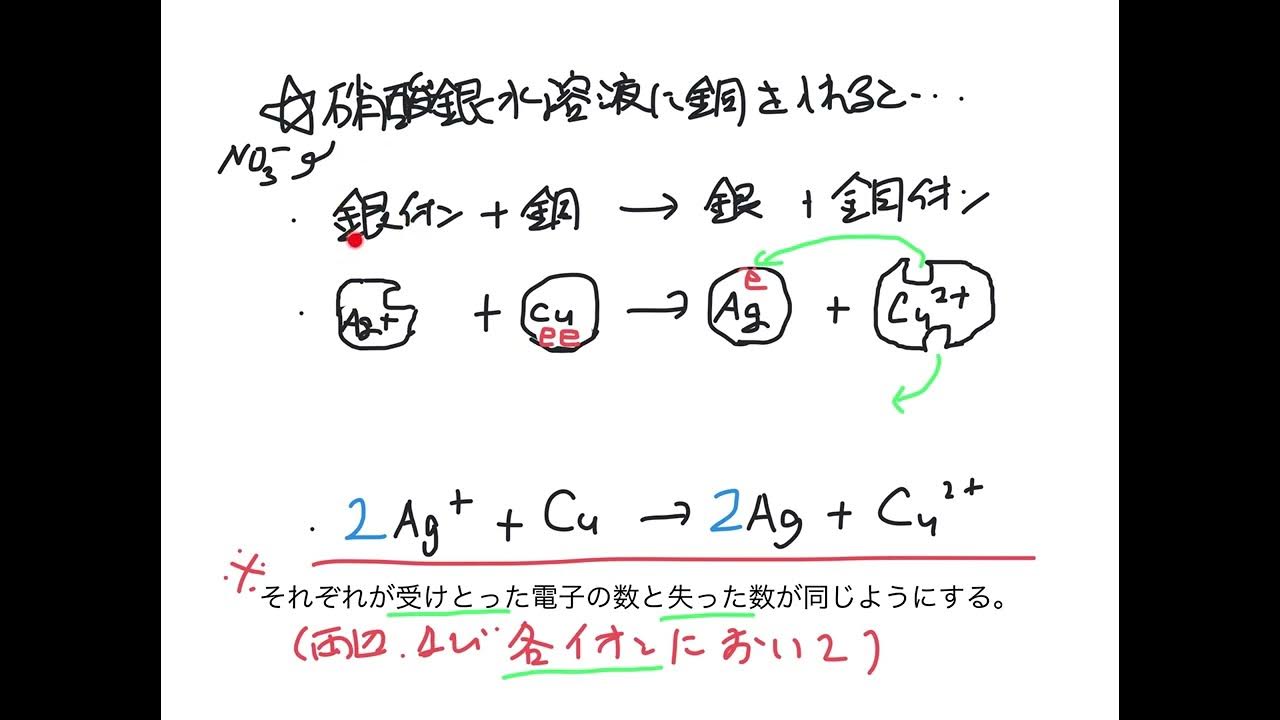 ☆硝酸銀水溶液に銅を入れると・・・
NO₃⁻
・銀イオン + 銅 → 銀 + 銅イオン
・Ag⁺ + Cu ee → Ag e + Cu²⁺
・2Ag⁺ + Cu → 2Ag + Cu²⁺
※それぞれが受けとった電子の数と失った数が同じようにする。
(両辺、および各イオンにおいて)